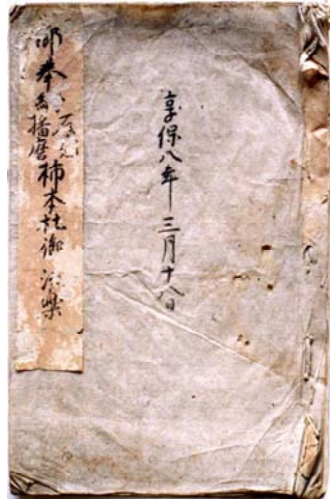 享保八年三月十八日
奉
播磨柿本社御法楽